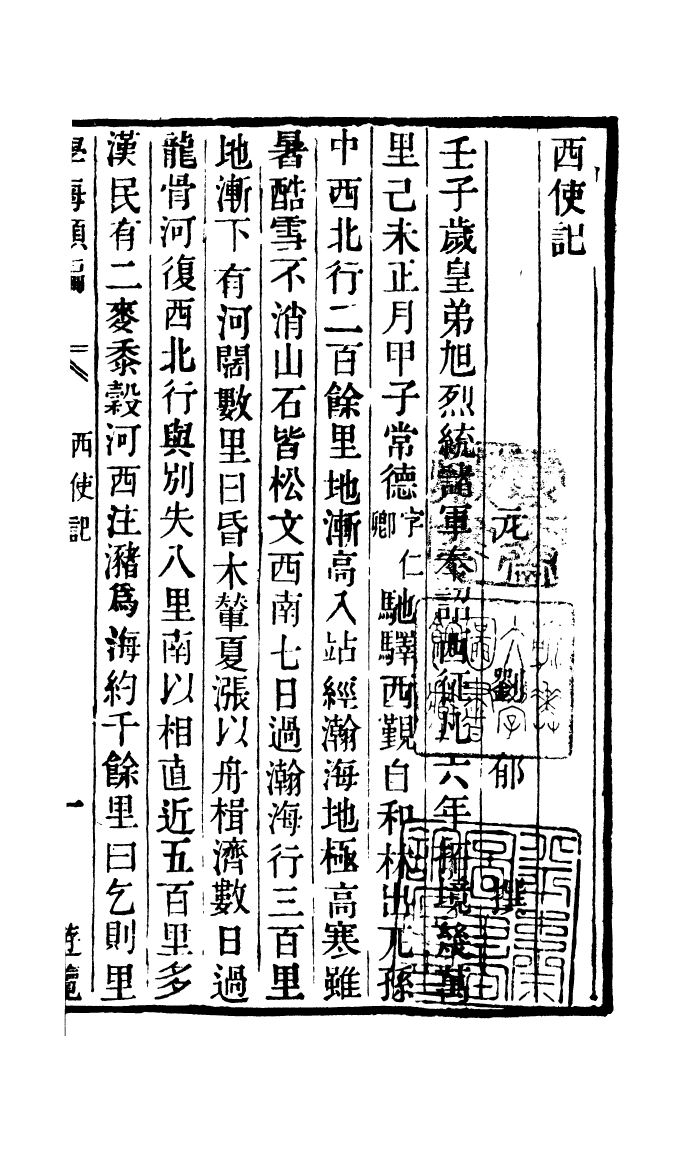 西使記
元 劉郁 撰
壬子歲皇弟旭烈統諸軍奉詔西征凡六年拓境幾萬
里己未正月甲子常德字仁卿馳驛西覲自和林出兀孫
中西北行二百餘里地漸高入站經瀚海地極高寒雖
暑酷雪不消山石皆松文西南七日過瀚海行三百里
地漸下有河闊數里曰昏木輦夏漲以舟楫濟數日過
龍骨河復西北行與別失八里南以相直近五百里多
漢民有二麥黍穀河西注瀦爲海約千餘里曰乞則里
學海類編 西使記 一 遊覽